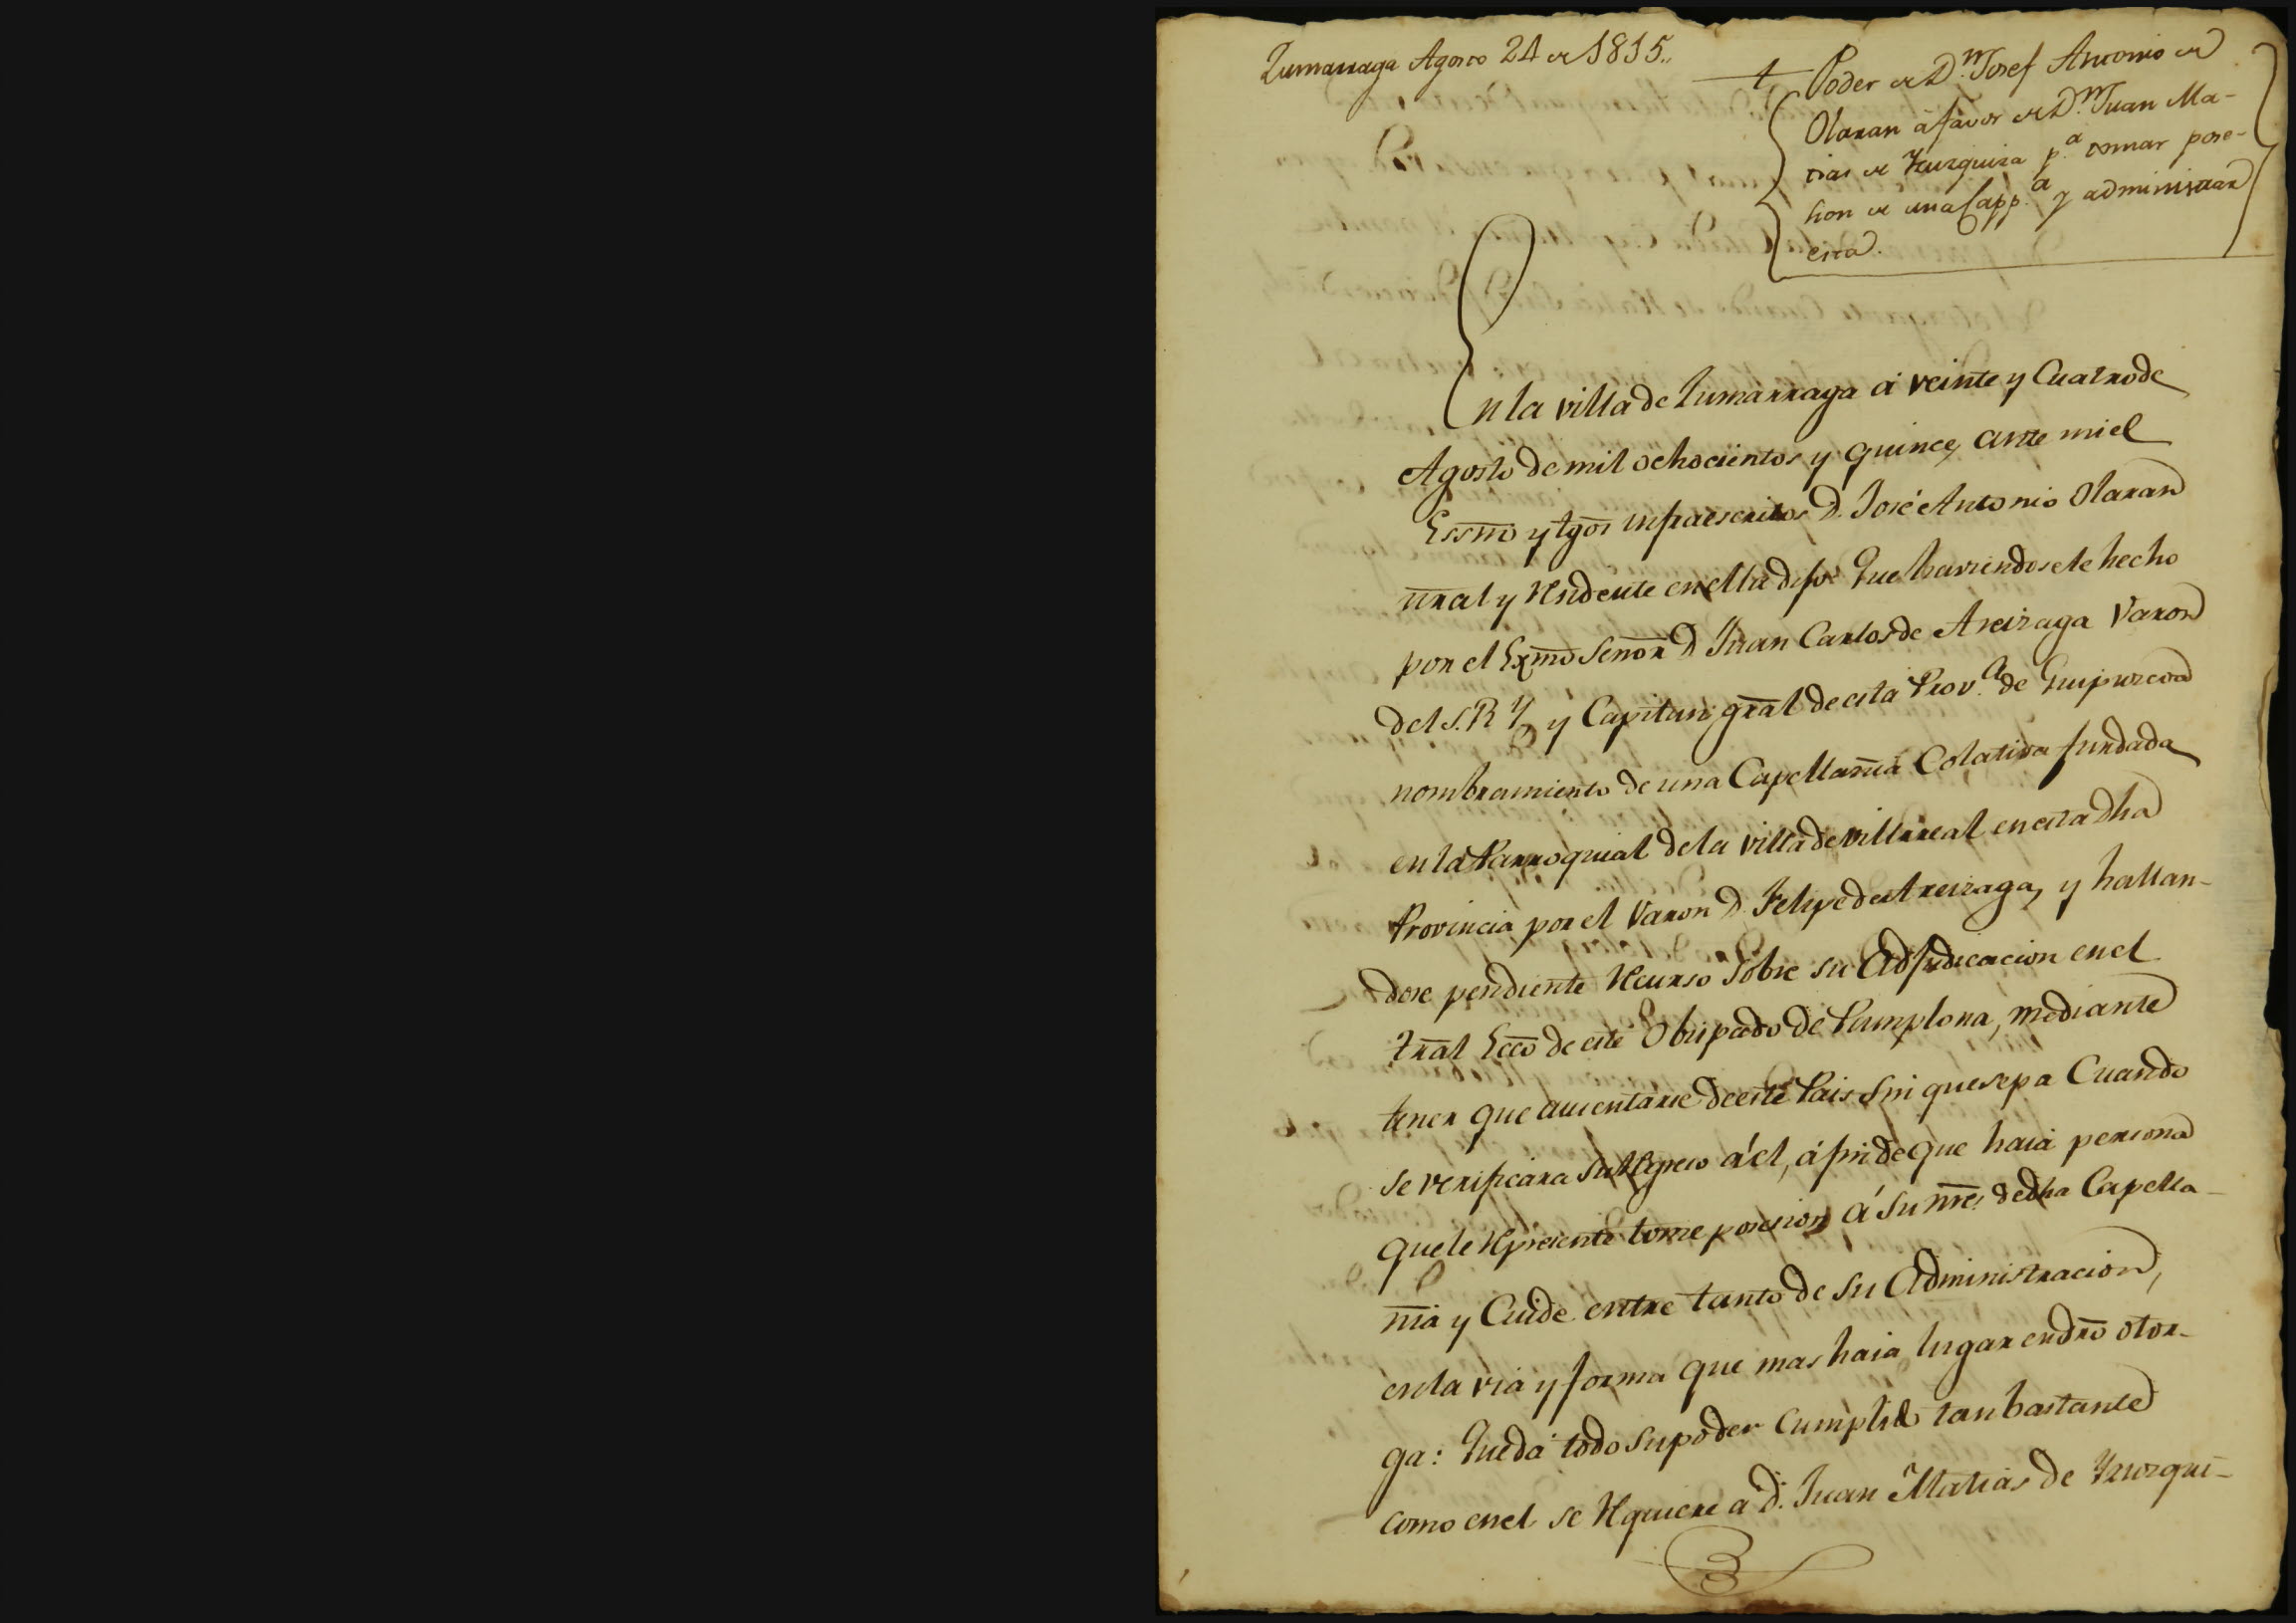 Zumarraga Agosto 24 de 1815.
Poder de D.n Josef Antonio de
Olaran á favor de D.n Juan Ma-
tias de Yzuzquiza p.a tomar pose-
sion de una Capp.a y administrar
esta.
En la villa de Zumarraga á veinte y Cuatro de
Agosto de mil ochocientos y quince, ante mi el
Essno y tgos infraescritos D. José Antonio Olaran
nral y Residente en ella dijo: Que haviendosele hecho
por el Exmo Señor D Juan Carlos de Areizaga Varon
del S. R. Y, y Capitan gral de esta Prov.a de Guipuzcoa
nombramiento de una Capellania Colativa fundada
en la Parroquial de la villa de Villarreal en esta dha
Provincia por el Varon D. Felipe de Areizaga, y hallan-
dose pendiente Recurso sobre su Adjudicacion en el
Tral Ecco de este Obispado de Pamplona, mediante
tener que ausentarse de este Pais sin que sepa Cuando
se verificara su Regreso á él, á fin de que haia persona
que le Represente tome posesion á su nre de dha Capella-
nia y Cuide entre tanto de su Administracion,
en la via y forma que mas haia lugar en dro otor-
ga: Que dá todo su poder Cumplido tan bastante
como en el se Requiere a D. Juan Matias de Yzuzqui-